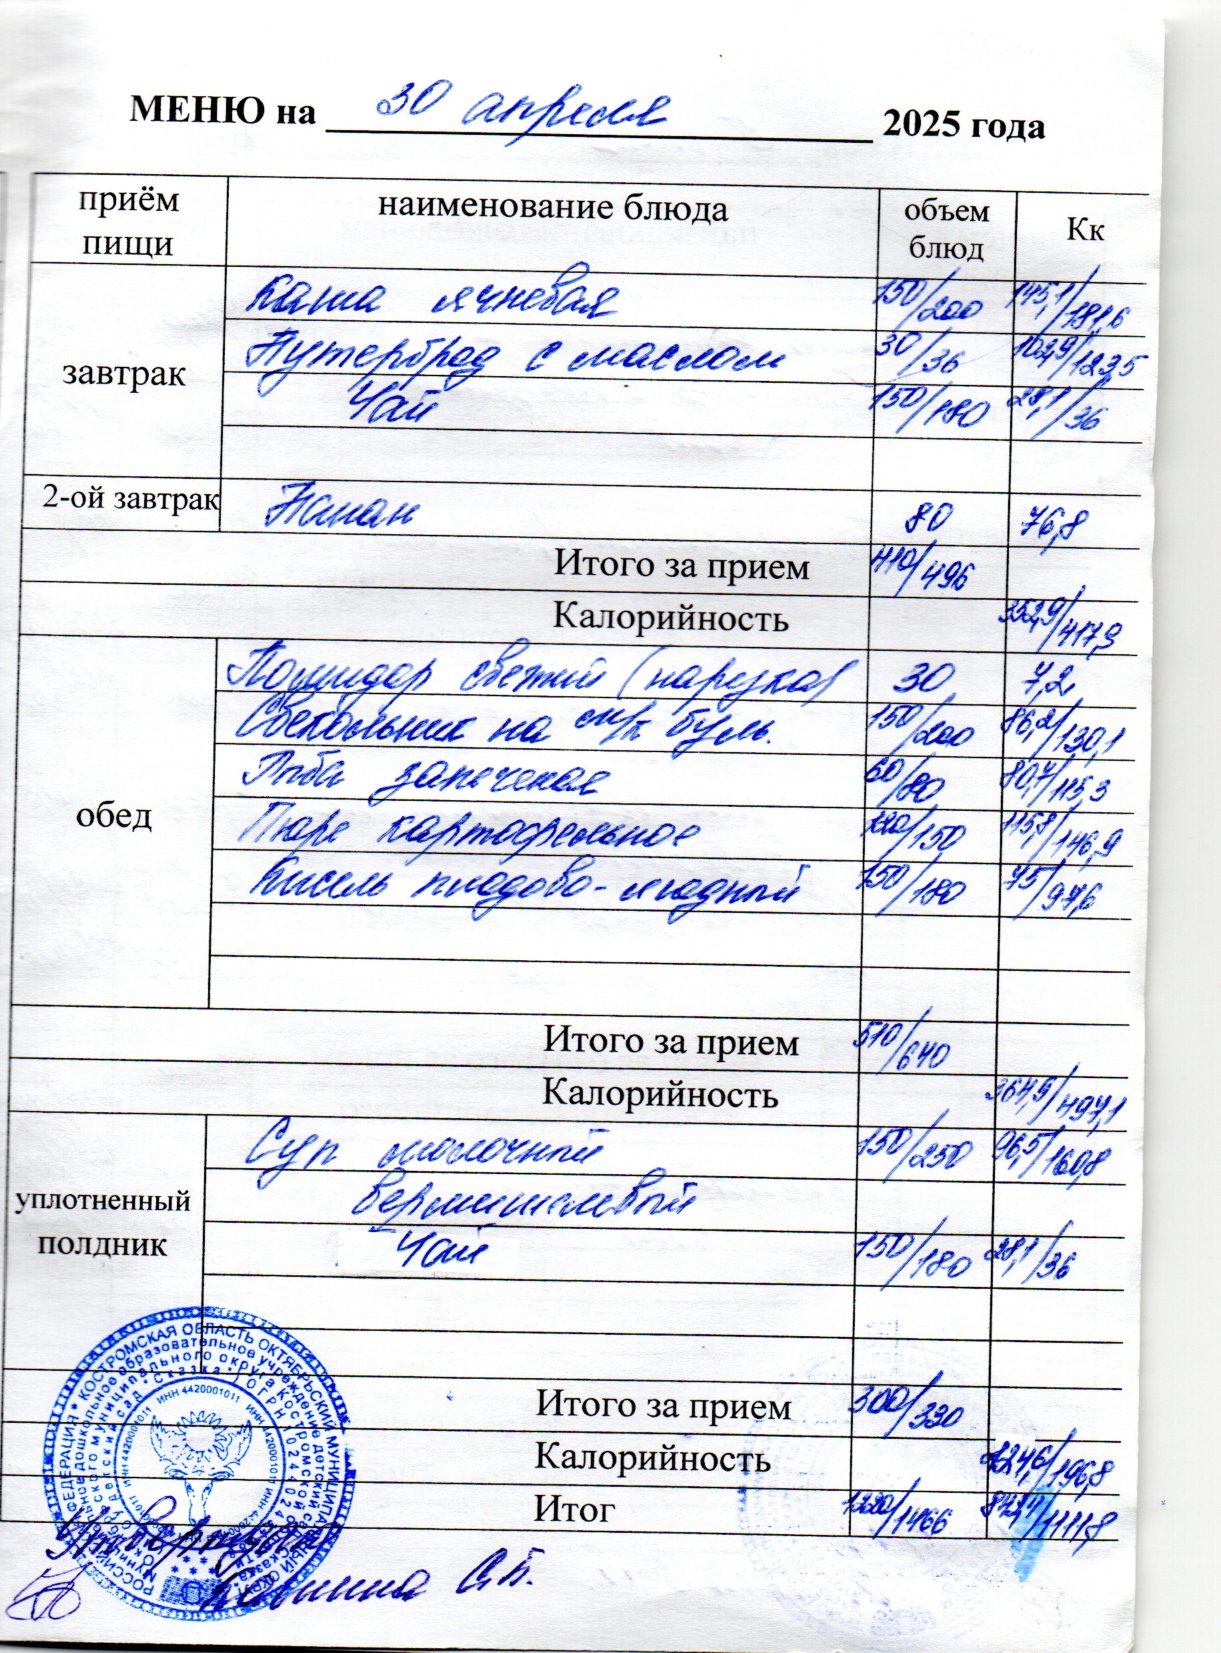 МЕНЮ на 30 апреля 2025 года
приём пищи наименование блюда объем блюд Кк
завтрак
Каша ячневая 150/200 145,1/181,6
Бутерброд с маслом 30/36 102,9/123,5
Чай 150/180 28,1/36
2-ой завтрак Банан 80 76,8
Итого за прием 410/496
Калорийность 352,9/417,9
обед
Помидор свежий (нарезка) 30 7,2
Свекольник на бульо. 150/200 86,2/130,1
Рыба запеченая 60/80 80,7/115,3
Пюре картофельное 120/150 115,8/146,9
Кисель плодово-ягодный 150/180 75/97,6
Итого за прием 510/640
Калорийность 364,9/497,1
уплотненный полдник
Суп молочный 150/250 96,5/160,8
вермишелевый
Чай 150/180 28,1/36
Итого за прием 300/330
Калорийность 124,6/196,8
Итог 1220/1466 /1111,8
ИНН 4420001011
Утверждаю
С.Б.